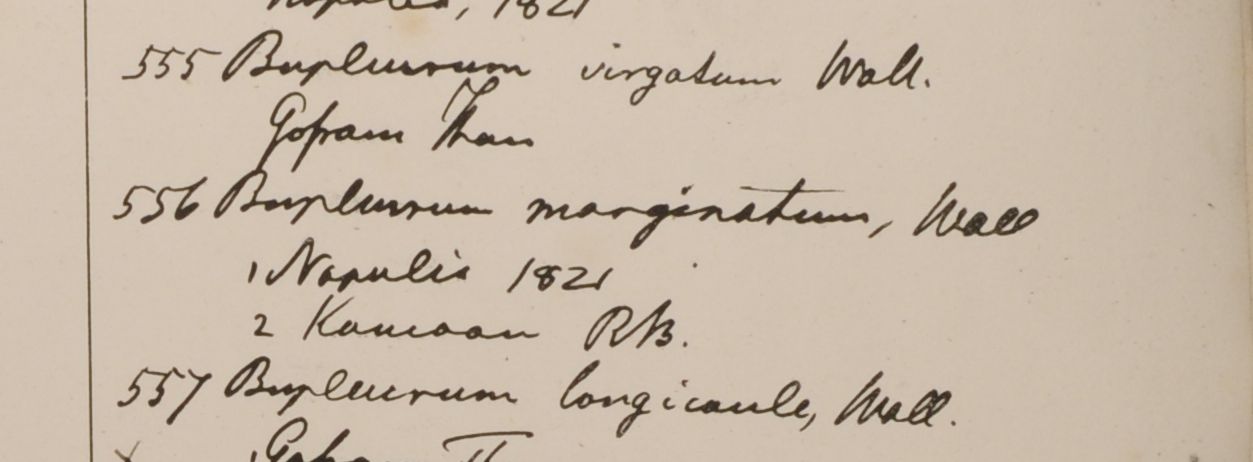 Napalia, 1821
555 Bupleurum virgatum Wall.
Gosam Than
556 Bupleurum marginatum, Wall
1 Napalia 1821
2 Kamaon RB.
557 Bupleurum longicaule, Wall.